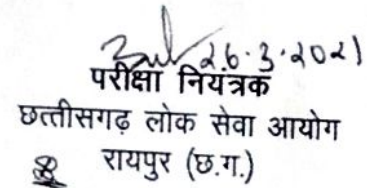 26.3.2021
परीक्षा नियंत्रक
छत्तीसगढ़ लोक सेवा आयोग
रायपुर (छ.ग.)